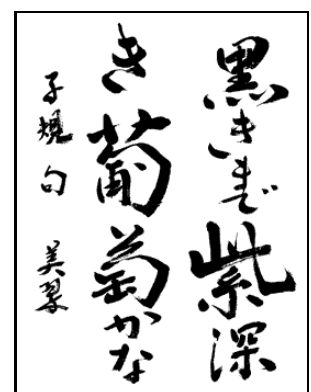 黒きまで紫深
き葡萄かな
子規句 美翠